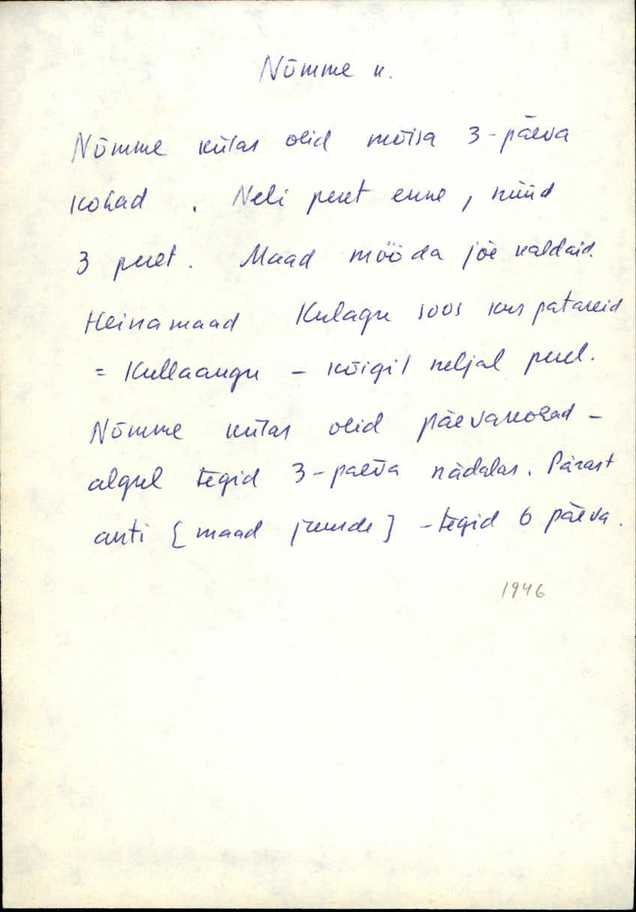 Nõmme k.
Nõmme külas olid mõisa 3-päeva
kohad. Neli peret enne, nüüd
3 peret. Maad mööda jõe kaldaid.
Heinamaad Kulagu soos kus patareid
= Kullaaugu – kõigil neljal perel.
Nõmme külas olid päevakohad –
algul tegid 3-päeva nädalas. Pärast
anti [maad juurde] – tegid 6 päeva.
1946